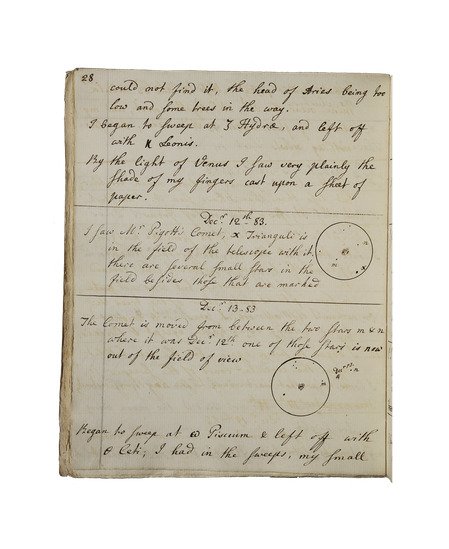 28
could not find it, the head of Aries being too
low and some trees in the way.
I began to sweep at ζ Hydræ, and left off
with κ Leonis.
By the light of Venus I saw very plainly the
shade of my fingers cast upon a sheet of
paper.
Decr 12th 83.
I saw Mr Pigott's Comet, x Trianguli is
in the field of the telescope with it,
there are several small stars in the
field besides those that are marked
n
m
x
Decr 13-83
The Comet is moved from between the two stars m & n
where it was Decr 12th one of those stars is now
out of the field of view
n
m
Began to sweep at ω Piscium & left off with
θ Ceti; I had in the sweeps, my small